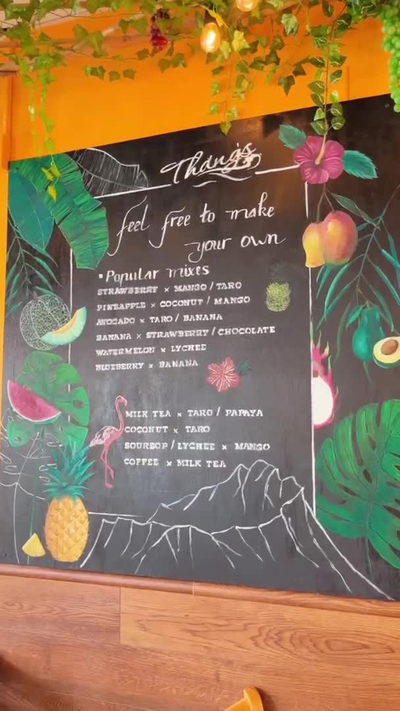 Thang's
feel free to make
your own
•Popular mixes
STRAWBERRY × MANGO / TARO
PINEAPPLE × COCONUT / MANGO
AVOCADO × TARO / BANANA
BANANA × STRAWBERRY / CHOCOLATE
WATERMELON × LYCHEE
BLUEBERRY × BANANA
MILK TEA × TARO / PAPAYA
COCONUT × TARO
SOURSOP / LYCHEE × MANGO
COFFEE × MILK TEA